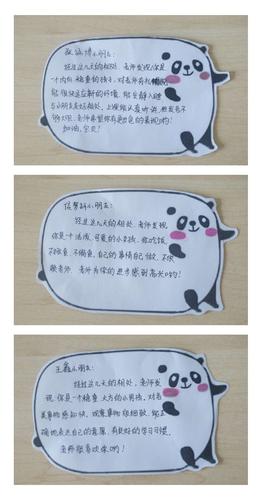 张涵博小朋友:
经过这几天的相处,老师发现你是
一个内向、稳重的孩子,对老师有礼貌
能很快适应新的环境,能安静入睡
与小朋友友好相处,上课能认真听讲,但发言不
够大胆,老师希望你有更出色的表现哟!
加油,宝贝!
小朋友:
经过这几天的相处,老师发现
你是一个活泼、可爱的小女孩,你吃饭
不挑食、不偏食,自己的事情自己做,不依
赖老师,老师为你的进步感到高兴哟!
王鑫小朋友:
经过这几天的相处,老师发
现你是一个稳重、大方的小男孩,对各
类事物感知快,观察事物很细致,能正
确地表达自己的意愿,有良好的学习习惯,
老师很喜欢你哟!